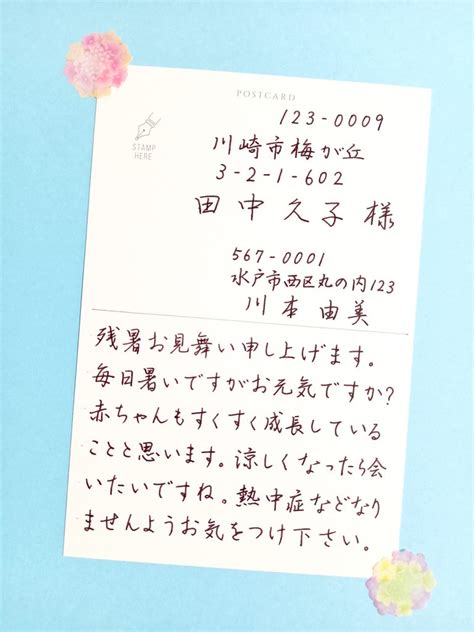 POSTCARD
STAMP
HERE
123-0009
川崎市梅が丘
3-2-1-602
田中久子様
567-0001
水戸市西区丸の内123
川本由美
残暑お見舞い申し上げます。
毎日暑いですがお元気ですか?
赤ちゃんもすくすく成長している
ことと思います。涼しくなったら会
いたいですね。熱中症などなり
ませんようお気をつけ下さい。